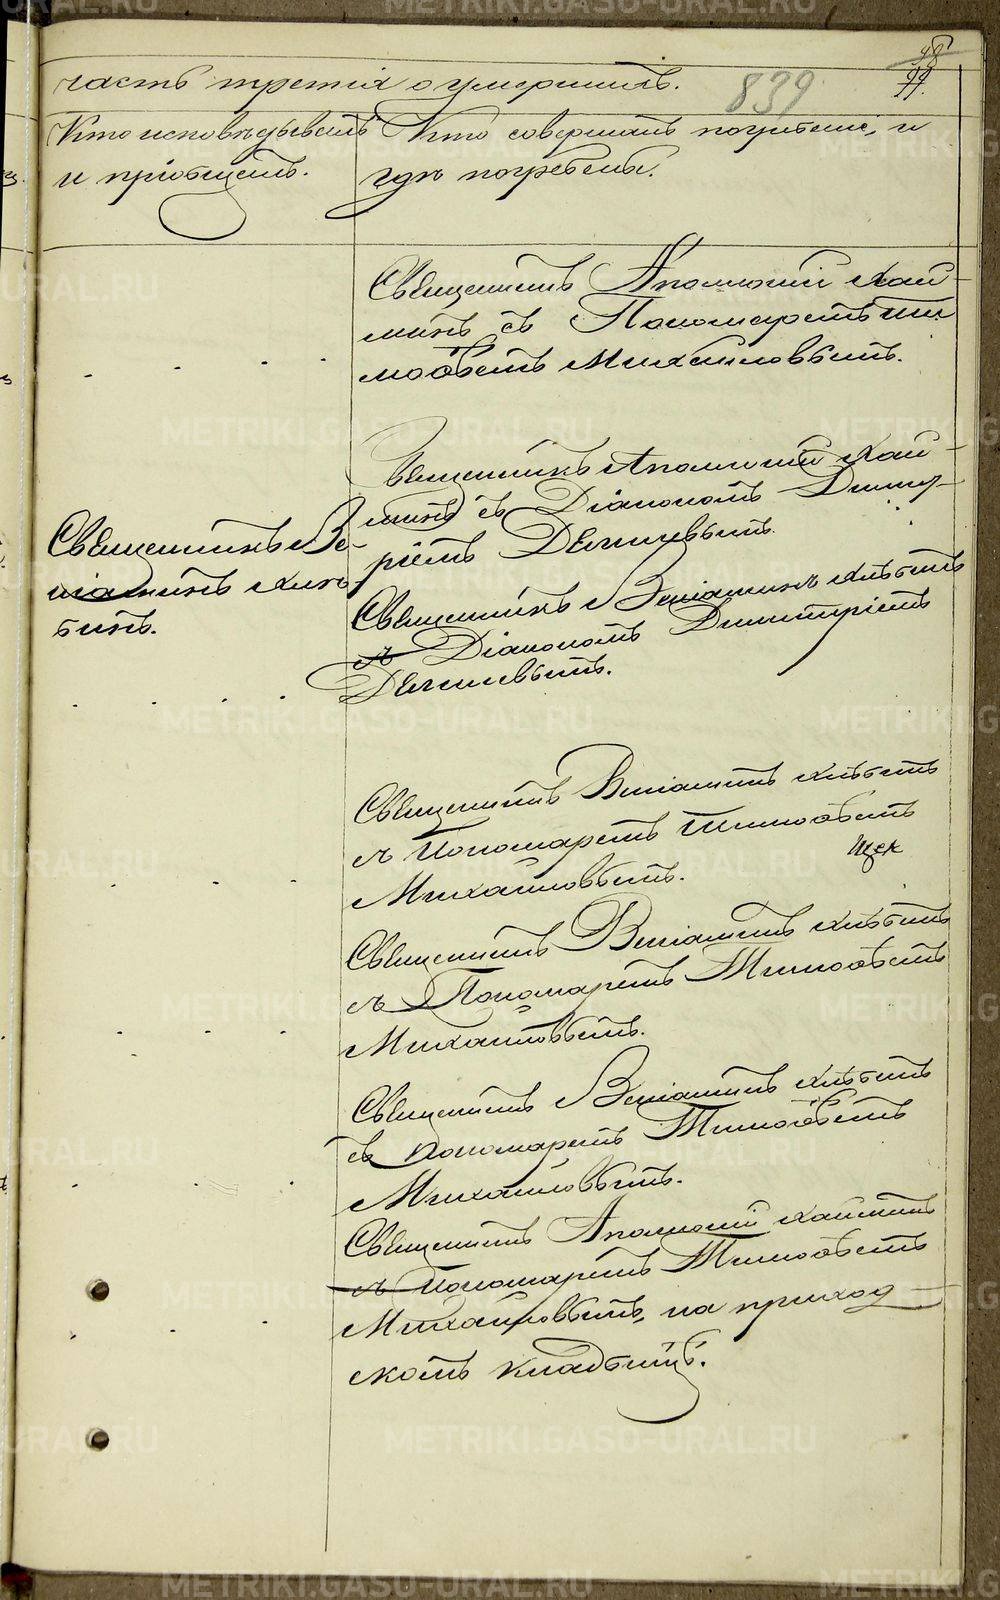 98
99
839
часть третія о умершихъ.
Кто исповѣдывалъ
и пріобщалъ.
Кто совершалъ погребеніе, и
гдѣ погребены.
Священникъ Аполлоній Хай-
минъ съ Пономаремъ Ти
моѳеемъ Михайловымъ.
Священникъ Аполлоній Хай-
минъ съ Діакономъ Димит-
ріемъ
Священникъ Ве-
ніаминъ Хлы-
бинъ.
Священникъ Веніаминъ
съ Діакономъ Димитріемъ
Священникъ Веніаминъ
съ Пономаремъ Тимоѳеемъ
Михайловымъ.
Священникъ Веніаминъ
съ Пономаремъ Тимоѳеемъ
Михайловымъ.
Священникъ Веніаминъ
съ Пономаремъ Тимоѳеемъ
Михайловымъ.
Священникъ Аполлоній Хайминъ
съ Пономаремъ Тимоѳеемъ
Михайловымъ, на приход
скомъ кладбищѣ.
METRIKI.GASO-URAL.RU